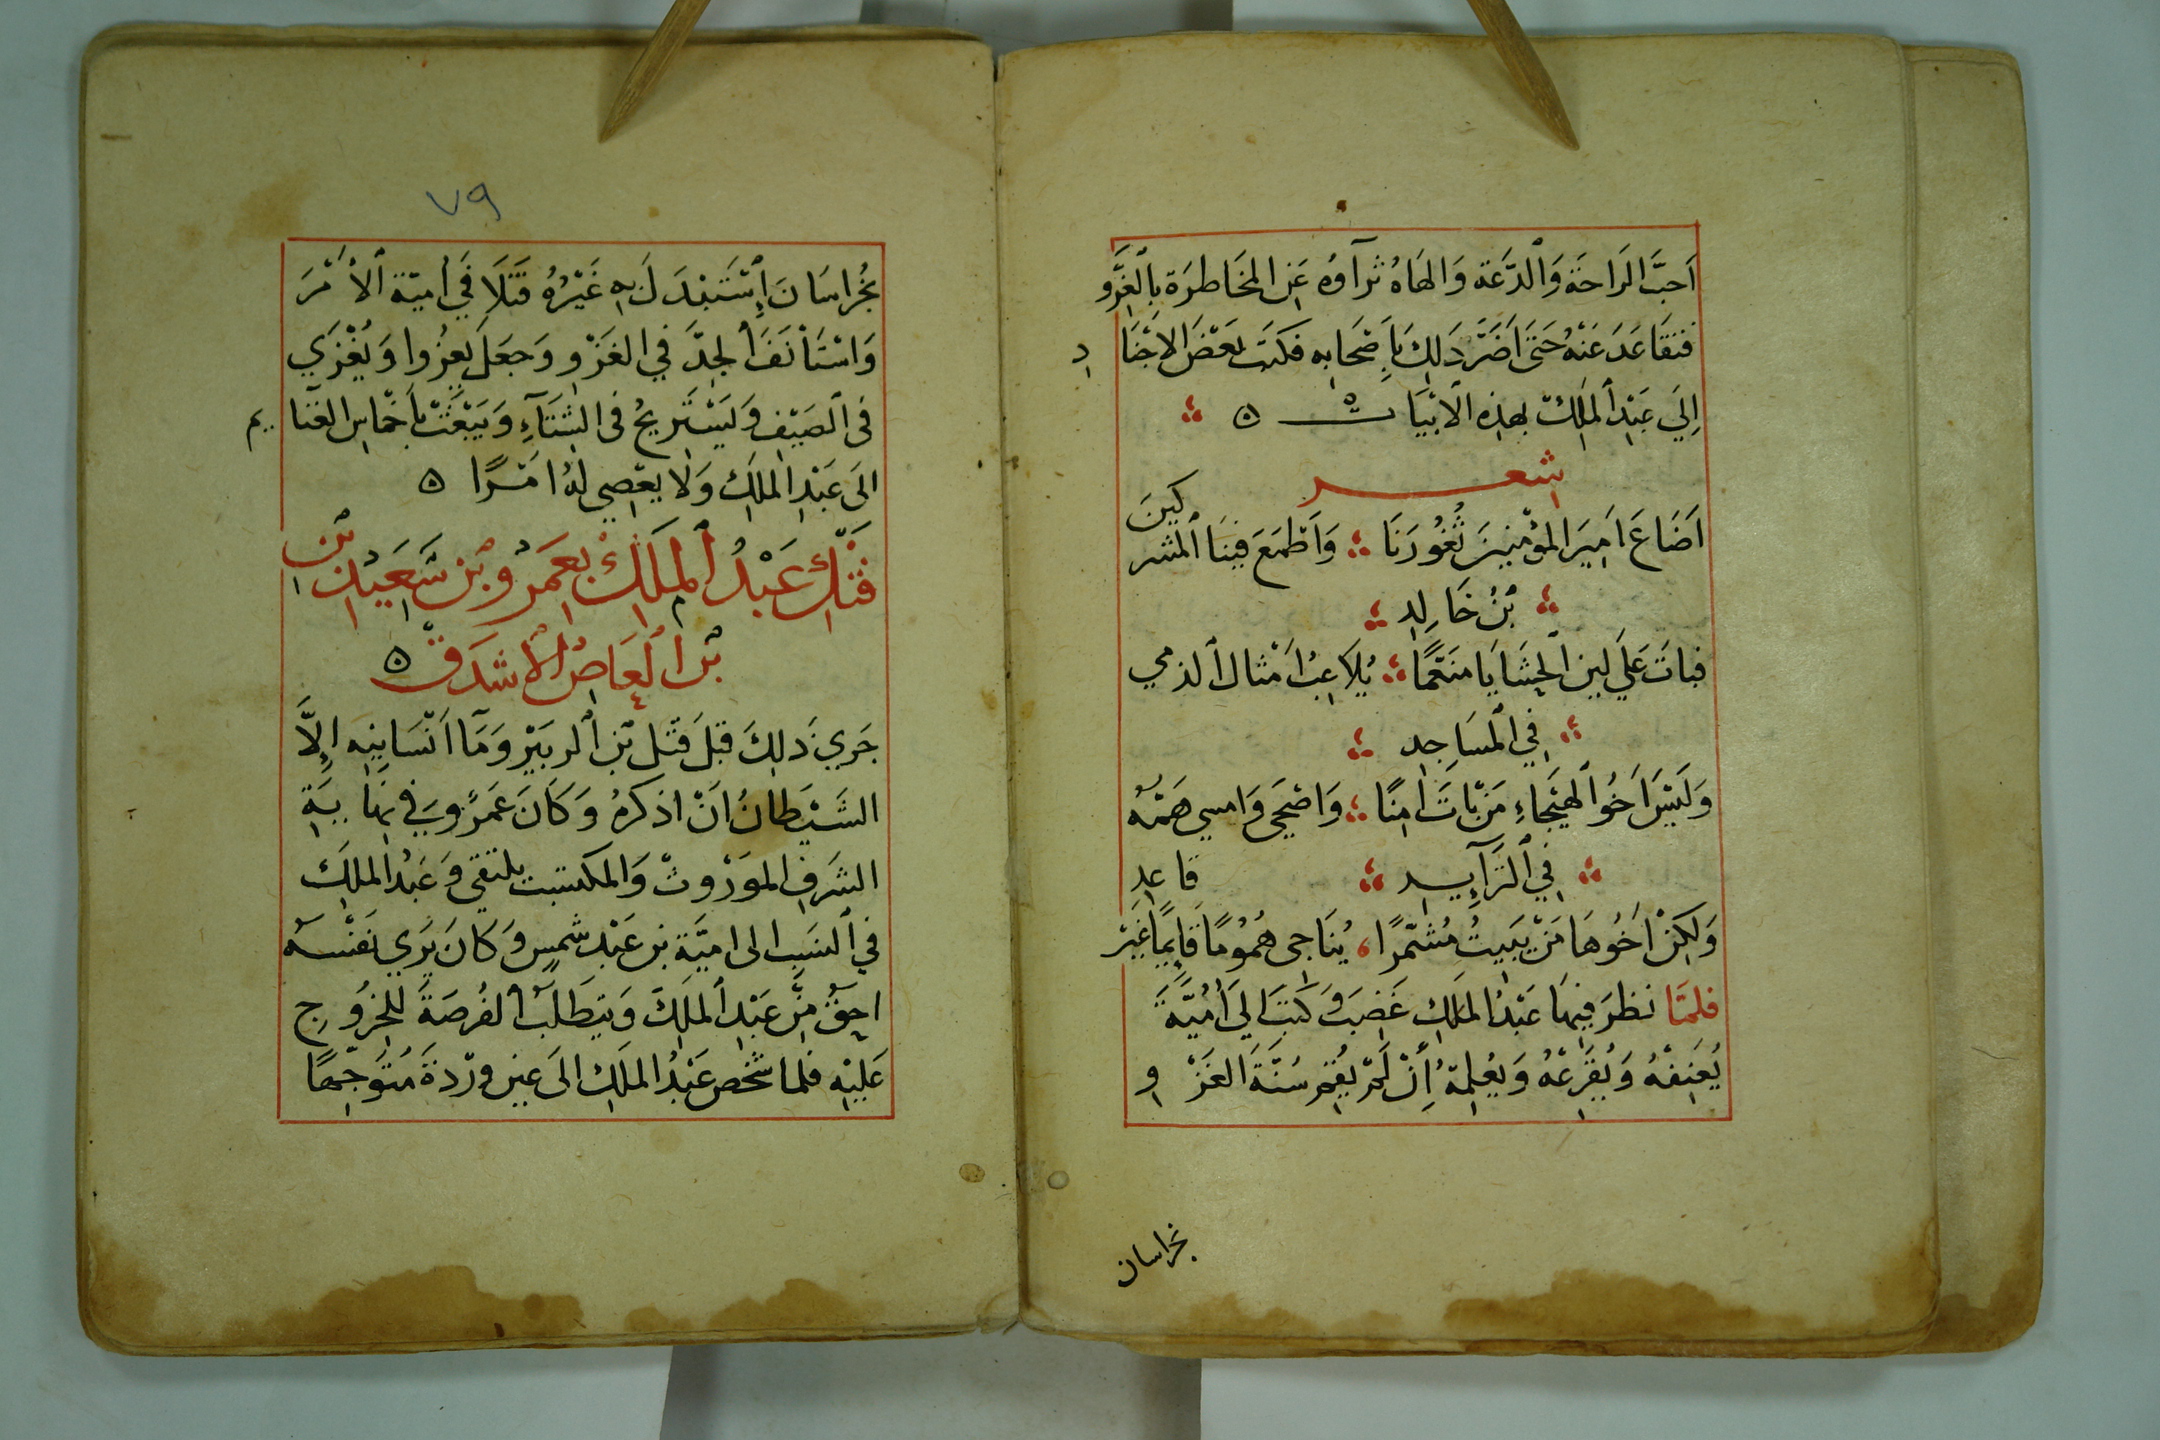 اَحبَّ الرَاحَة وَالدَّعَة وَالهَاهُ ثرآوه عَن المخَاطرَة بِالغَزو
فتقَاعَدَ عَنْهُ حَتى اَضَرَّ ذَلِكَ بِاَصْحَابه فكتَب بَعْضَ الاجْنَا د
اِلَي عَبْد المَلِك بهذه الابْيَات ه
شعر
اَضَاعَ اَمِيرَ المؤمنِينَ ثُغُورَنَا وَاَطْمَعَ فينَا المشر كينَ
بْنُ خَالِدِ
فبَاتَ عَلَي لين الحَشَايَا منَعَّمًا يُلاعِبُ اَمْثال الدمي
في المسَاجِدِ
وَلَيْسَ اَخُوا الهَيْجَاءِ مَنْ بَاتَ امِنًا وَاضْحَي وَامسي هَمّهُ
في الثَّرَآيِدِ قاعِدِ
وَلكِنْ اَخُوهَا مَنْ يَبيتُ مُشَمّرًا يُنَاجى هُمُومًا قَايِمًا غَيْر
فلمَّا نظرَ فِيهَا عَبْدُ المَلَكِ غَضِبَ وَكتَبَ اِلَي اُمَيَّةَ
يُعَنِفهُ وَيُقَرِعهُ وَيُعْلِمهُ اِنْ لَمْ يُقِم سُنَّةَ الغَزْ و
بخراسان
٧٩
بخُراسَانَ اِسْتَبْدَلَ بِهِ غَيْرهُ فَتَلَافَي اميّة الأمْرَ
وَاسْتَأنَفَ الجِدَّ في الغَزْوِ وَجعَلَ يَغزُوا وَيُغْزي
فى الصَيْف وَيَسْتَريحُ فى الشتَآءِ وَيَبْعَثْ بِاَخْمَاس الغَنا يم
الَى عَبْد المَلِك وَلا يعْصِي لهُ امْرًا ه
فَتْك عَبْدُ المَلَك بعَمرُو بْن سَعِيْد بْن
بْن العَاص الاشدَق ه
جَرَي ذَلِكَ قبْلَ قتْل بْن الزبَيْر وَمَا اَنْسَانِيْه اِلاَّ
الشيْطانُ اَنْ اذكرهُ وَكَانَ عَمْرٌو في نهَايَةِ
الشرَف الموْرُوث وَالمكتسَب يلتقي وَعَبْدُ المَلِك
في النسَب الى اميَّة بن عَبْد شمسٍ وَكَانَ يَري نفْسَه
احَقّ مِنْ عَبْدِ المَلِكَ وَيتَطَلَّبُ الفُرصَةَ للخُرُوج
عَليْهِ فلما شخصَ عَبْدُ المَلِك الَى عَين وَرْدَةَ مُتَوَجِّهًا